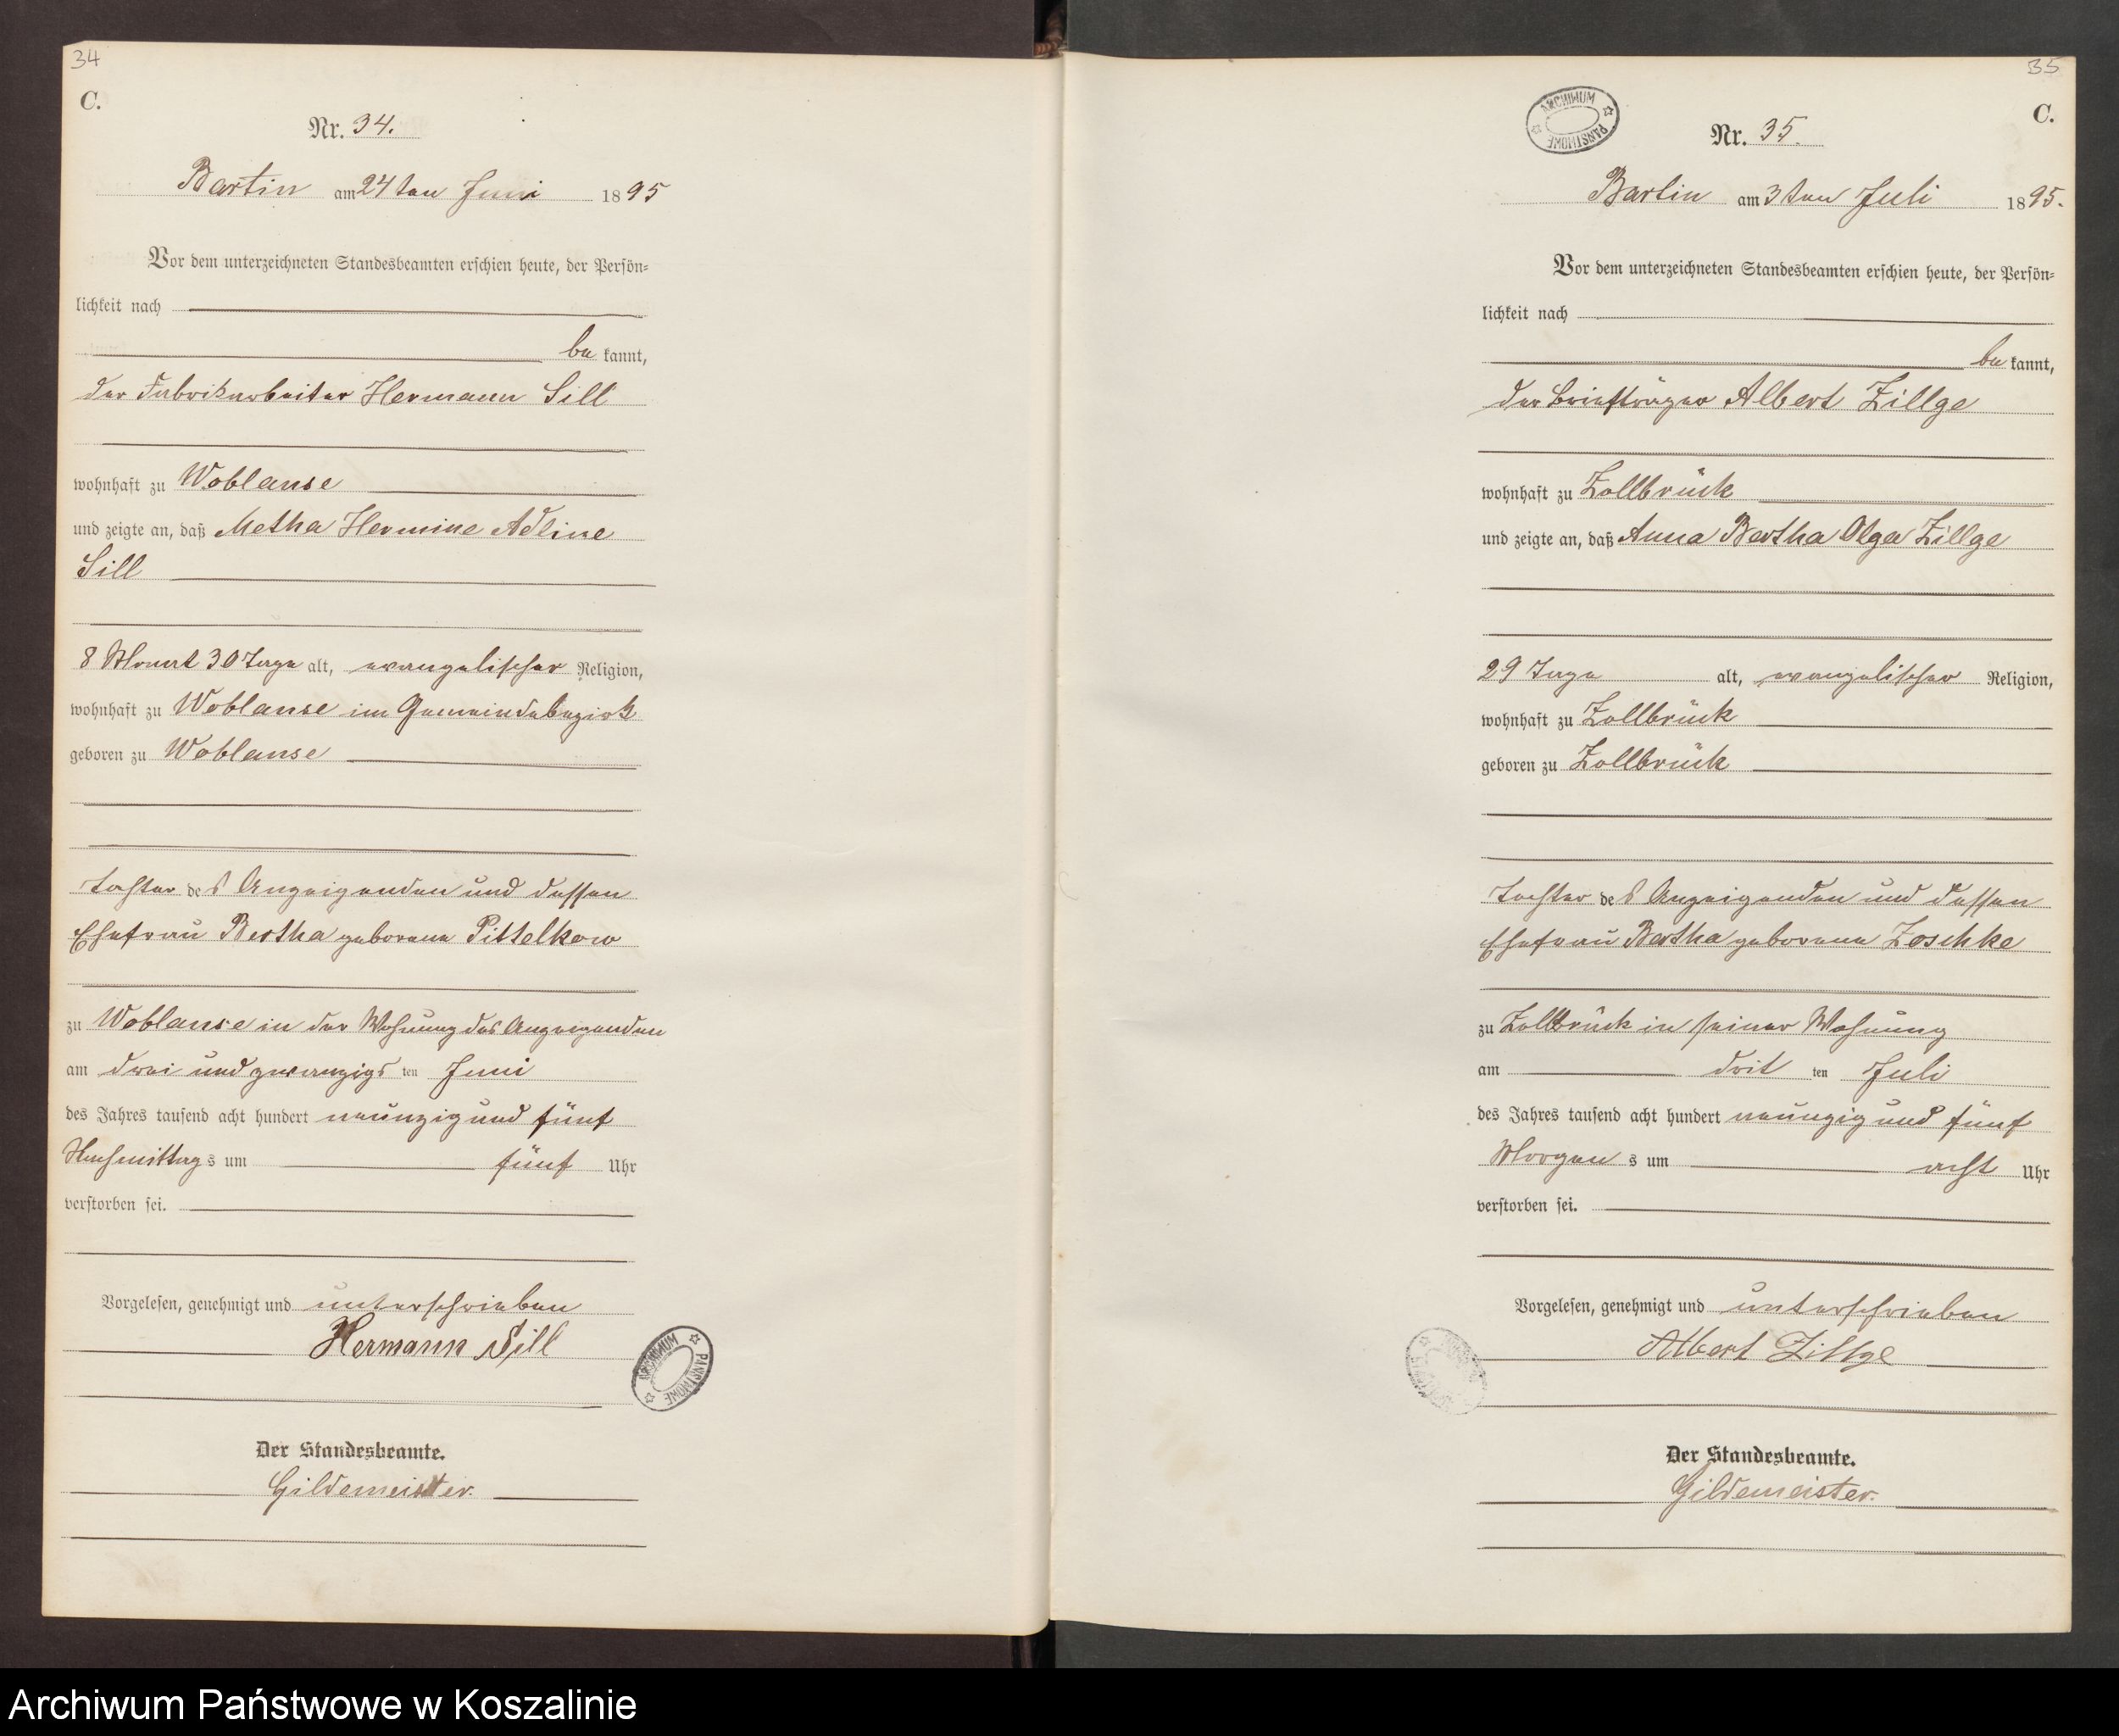 34
C.
Nr. 34.
Bartin am 24ten Juni 1895
Vor dem unterzeichneten Standesbeamten erschien heute, der Persön-
lichkeit nach
bekannt,
der Fabrikarbeiter Hermann Sill
wohnhaft zu Woblanse
und zeigte an, daß Metha Hermine Adline
Sill
8 Monat 30 Tage alt, evangelischer Religion,
wohnhaft zu Woblanse im Gemeindebezirk
geboren zu Woblanse
Tochter des Anzeigenden und dessen
Ehefrau Bertha geborene Pittelkow
zu Woblanse in der Wohnung des Anzeigenden
am drei und zwanzigsten Juni
des Jahres tausend acht hundert neunzig und fünf
Nachmittags um fünf Uhr
verstorben sei.
Vorgelesen, genehmigt und unterschrieben
Hermann Sill
ARCHIWUM PAŃSTWOWE
Der Standesbeamte.
Gildemeister.
35
C.
ARCHIWUM PAŃSTWOWE
Nr. 35.
Bartin am 3ten Juli 1895.
Vor dem unterzeichneten Standesbeamten erschien heute, der Persön-
lichkeit nach
bekannt,
der Briefträger Albert Zillge
wohnhaft zu Zollbrück
und zeigte an, daß Anna Bertha Olga Zillge
29 Tage alt, evangelischer Religion,
wohnhaft zu Zollbrück
geboren zu Zollbrück
Tochter des Anzeigenden und dessen
Ehefrau Bertha geborene Zoschke
zu Zollbrück in seiner Wohnung
am dritten Juli
des Jahres tausend acht hundert neunzig und fünf
Morgens um acht Uhr
verstorben sei.
Vorgelesen, genehmigt und unterschrieben
Albert Zillge
Der Standesbeamte.
Gildemeister.
Archiwum Państwowe w Koszalinie